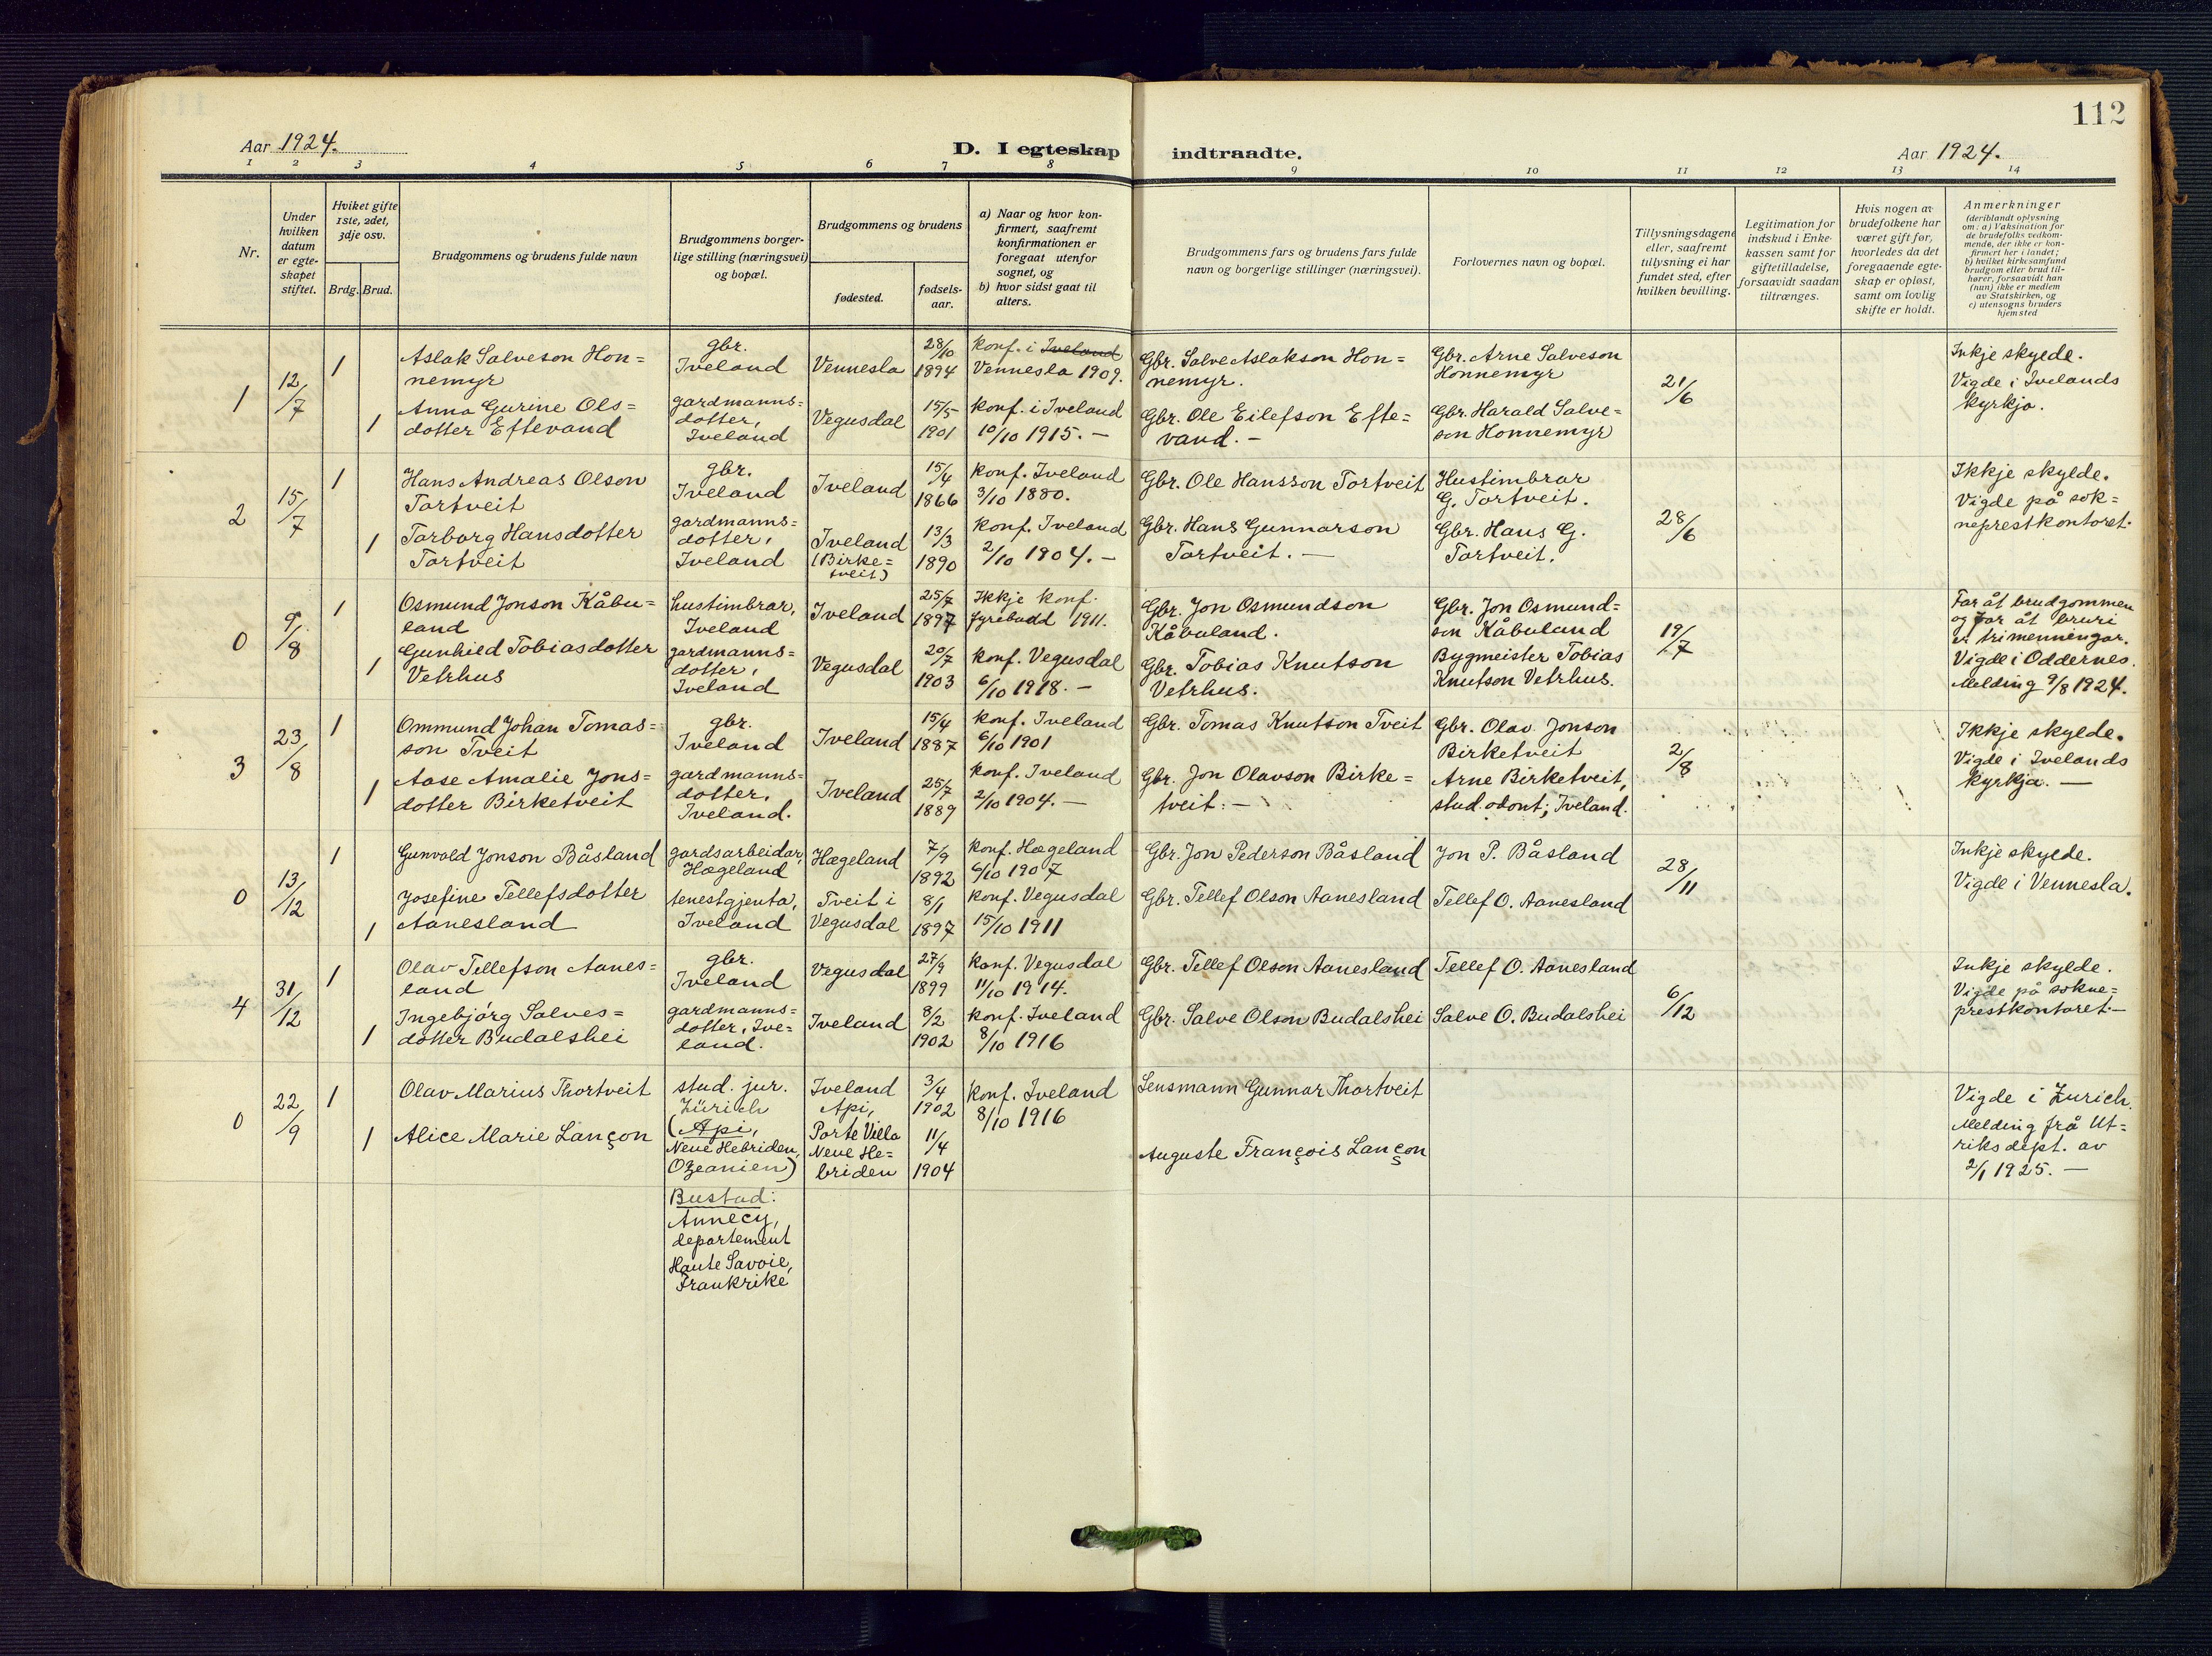 112
Aar 1924.
D. I egteskap indtraadte.
Aar 1924.
1 2 3 4 5 6 7 8 9 10 11 12 13 14
Nr.
Under
hvilken
datum
er egte-
skapet
stiftet.
Hviket gifte
1ste, 2det,
3dje osv.
Brdg. Brud.
Brudgommens og brudens fulde navn
Brudgommens borger-
lige stilling (næringsvei)
og bopæl.
Brudgommens og brudens
fødested.
fødsels-
aar.
a) Naar og hvor kon-
firmert, saafremt
konfirmationen er
foregaat utenfor
sognet, og
b) hvor sidst gaat til
alters.
Brudgommens fars og brudens fars fulde
navn og borgerlige stillinger (næringsvei).
Forlovernes navn og bopæl.
Tillysningsdagene
eller, saafremt
tillysning ei har
fundet sted, efter
hvilken bevilling.
Legitimation for
indskud i Enke-
kassen samt for
giftetilladelse,
forsaavidt saadan
tiltrænges.
Hvis nogen av
brudefolkene har
været gift før,
hvorledes da det
foregaaende egte-
skap er opløst,
samt om lovlig
skifte er holdt.
Anmerkninger
(deriblandt oplysning
om: a) Vaksination for
de brudefolks vedkom-
mende, der ikke er kon-
firmert her i landet;
b) hvilket kirkesamfund
brudgom eller brud til-
hører, forsaavidt han
(hun) ikke er medlem
av Statskirken, og
c) utensogns bruders
hjemsted
1
12/7
1
Aslak Salveson Hon=
nemyr
gbr.
Iveland
Vennesla
28/10
1894
konf. i Iveland
Vennesla 1909.
Gbr. Salve Aslakson Hon=
nemyr.
Gbr. Arne Salveson
Honnemyr
21/6
Inkje skyede.
Vigde i Ivelands
kyrkja.
1
Anna Gurine Ols=
dotter Eftevand
gardmanns=
dotter,
Iveland
Vegusdal
15/5
1901
konf. i Iveland
10/10 1915. —
Gbr. Ole Eilefson Efte=
vand. —
Gbr. Harald Salve=
son Honnemyr
2
15/7
1
Hans Andreas Olson
Tortveit
gbr.
Iveland
Iveland
15/4
1866
konf. Iveland
3/10 1880.
Gbr. Ole Hansson Tortveit
Hustimbrar
G. Tortveit.
28/6
Ikkje skylde.
Vigde på sok=
neprestkontoret.
1
Torborg Hansdotter
Tortveit
gardmanns=
dotter,
Iveland
Iveland
(Birke=
tveit)
13/3
1890
konf. Iveland
2/10 1904. —
Gbr. Hans Gunnarson
Tortveit. —
Gbr. Hans G.
Tortveit.
0
9/8
1
Osmund Jonson Kåbu=
land
hustimbrar,
Iveland
Iveland
25/7
1897
Ikkje konf.
fyrebudd 1911.
Gbr. Jon Osmundson
Kåbuland.
Gbr. Jon Osmund=
son Kåbuland
19/7
Far åt brudgommen
og far åt bruri
er trimenningar.
Vigde i Oddernes.
Melding 9/8 1924.
1
Gunhild Tobiasdotter
Vetrhus
gardmanns=
dotter,
Iveland
Vegusdal
20/7
1903
konf. Vegusdal
6/10 1918. —
Gbr. Tobias Knutson
Vetrhus.
Bygmeister Tobias
Knutson Vetrhus.
3
23/8
1
Ommund Johan Tomas=
son Tveit
gbr.
Iveland
Iveland
15/4
1887
konf. Iveland
6/10 1901
Gbr. Tomas Knutson Tveit
Gbr. Olav Jonson
Birketveit
2/8
Ikkje skylde.
Vigde i Ivelands
kyrkja. —
1
Aase Amalie Jons=
dotter Birketveit
gardmanns=
dotter,
Iveland.
Iveland
25/7
1889
konf. Iveland
2/10 1904. —
Gbr. Jon Olavson Birke=
tveit. —
Arne Birketveit,
stud. odont; Iveland.
0
13/12
1
Gunvald Jonson Båsland
gardsarbeidar,
Hægeland
Hægeland
7/9
1892
konf. Hægeland
6/10 1907
Gbr. Jon Pederson Båsland
Jon P. Båsland
28/11
Inkje skyede.
Vigde i Vennesla.
1
Josefine Tellefsdotter
Aanesland
tenestgjenta,
Iveland
Tveit i
Vegusdal
8/1
1897
konf. Vegusdal
15/10 1911
Gbr. Tellef Olson Aanesland
Tellef O. Aanesland
4
31/12
1
Olav Tellefson Aanes=
land
gbr.
Iveland
Vegusdal
27/9
1899
konf. Vegusdal
11/10 1914.
Gbr. Tellef Olson Aanesland
Tellef O. Aanesland
6/12
Inkje skylde.
Vigde på sokne=
prestkontoret. —
1
Ingebjørg Salves=
dotter Budalshei
gardmanns=
dotter, Ive=
land.
Iveland
8/2
1902
konf. Iveland
8/10 1916
Gbr. Salve Olson Budalshei
Salve O. Budalshei
0
22/9
1
Olav Marius Thortveit
stud. jur.
Zürich
Iveland
3/4
1902
konf. Iveland
8/10 1916
Lensmann Gunnar Thortveit
Vigde i Zurich.
Melding frå Ut=
riksdept. av
2/1 1925. —
1
Alice Marie Lançon
(Api,
Neue Hebriden,
Ozeanien)
Bustad:
Annecy,
departement
Haute Savoie,
Frankrike
Api,
Porte Villa
Neue He-
briden
11/4
1904
Auguste François Lançon